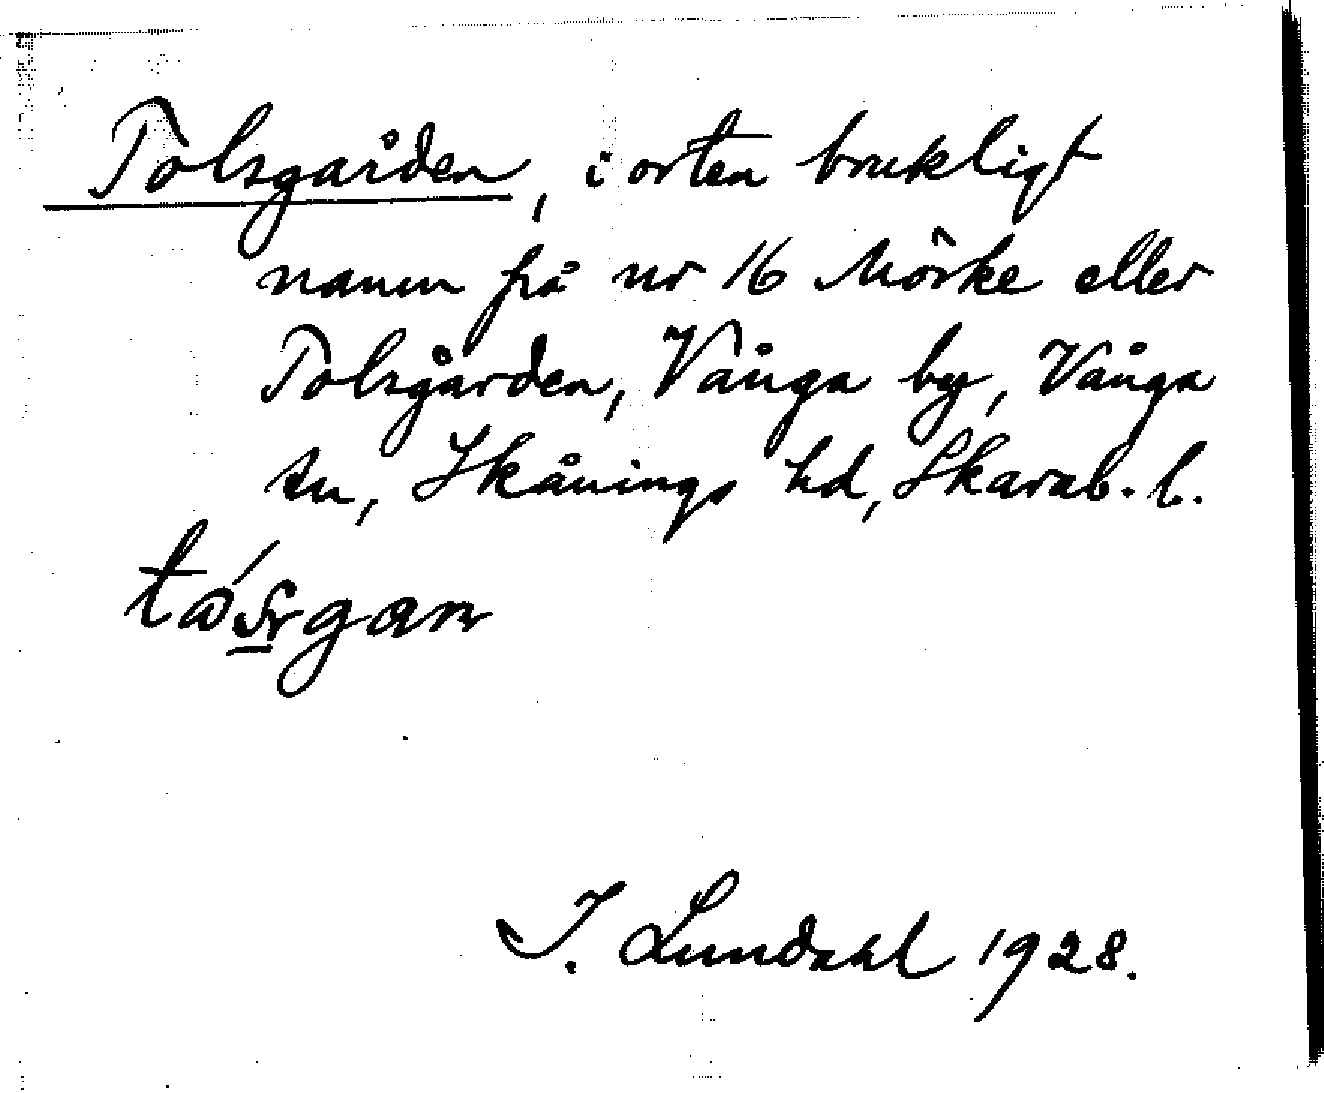 Tolsgården, i orten brukligt
namn på nr 16 Mörke eller
Tolsgården, Vånga by, Vånga
sn, Skånings hd, Skarab. l.
I. Lundahl 1928.